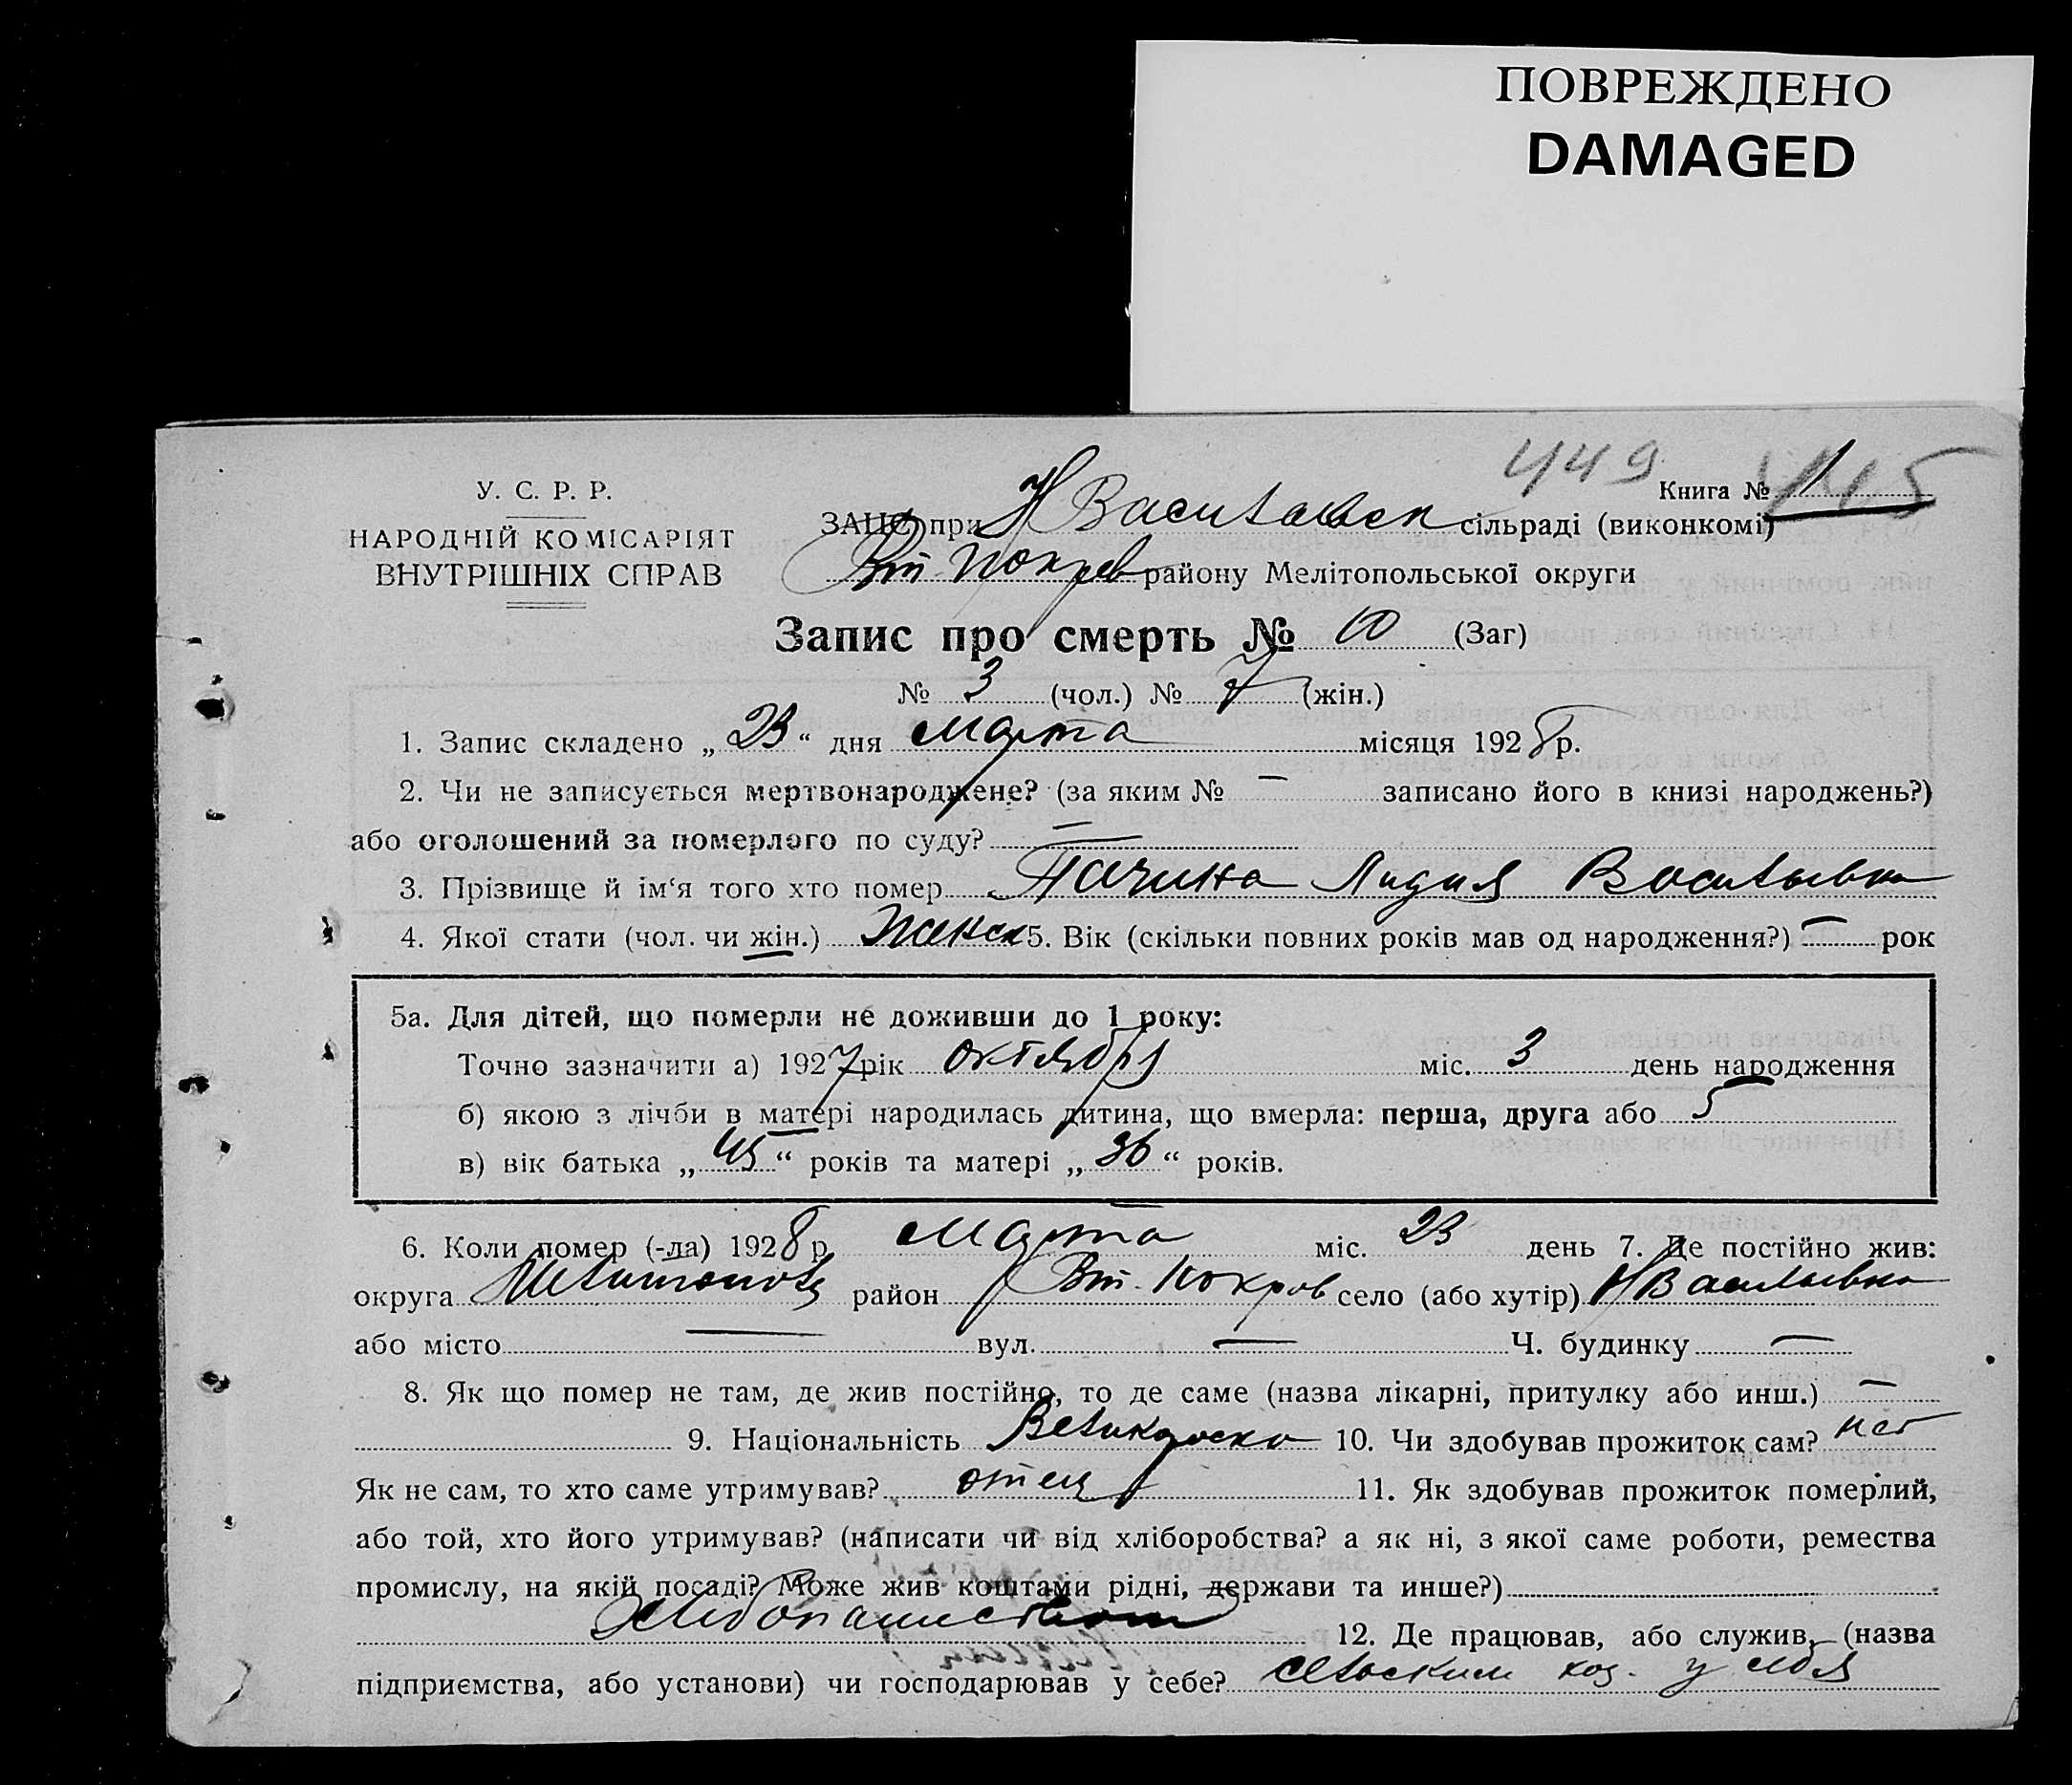 ПОВРЕЖДЕНО
DAMAGED
449
У. С. Р. Р.
Книга № 1
НАРОДНІЙ КОМІСАРІЯТ
ВНУТРІШНІХ СПРАВ
ЗАЦС при Н Васильевск сільраді (виконкомі)
Вт Покров району Мелітопольської округи
Запис про смерть № 10 (Заг)
№ 3 (чол.) № 7 (жін.)
1. Запис складено „ 23 “ дня Марта місяця 1928 р.
2. Чи не записується мертвонароджене? (за яким № — записано його в книзі народжень?)
або оголошений за померлого по суду? —
3. Прізвище й ім‘я того хто помер Пачина Лидия Васильевна
4. Якої стати (чол. чи жін.) женск 5. Вік (скільки повних років мав од народження?) — рок
5а. Для дітей, що померли не доживши до 1 року:
Точно зазначити а) 1927 рік октября міс. 3 день народження
б) якою з лічби в матері народилась дитина, що вмерла: перша, друга або 5
в) вік батька „ 45 “ років та матері „ 36 “ років.
6. Коли помер (-ла) 1928 р. Марта міс. 23 день 7. Де постійно жив:
округа Мелитополь район Вт. Покров село (або хутір) Н Васильевка
або місто — вул. — Ч. будинку —
8. Як що помер не там, де жив постійно, то де саме (назва лікарні, притулку або инш.) —
9. Національність Великороска 10. Чи здобував прожиток сам? нет
Як не сам, то хто саме утримував? отец 11. Як здобував прожиток померлий,
або той, хто його утримував? (написати чи від хліборобства? а як ні, з якої саме роботи, ремества
промислу, на якій посаді? Може жив коштами рідні, держави та инше?)
хлебопашеством 12. Де працював, або служив, (назва
підприємства, або установи) чи господарював у себе? сельским хоз. у себя